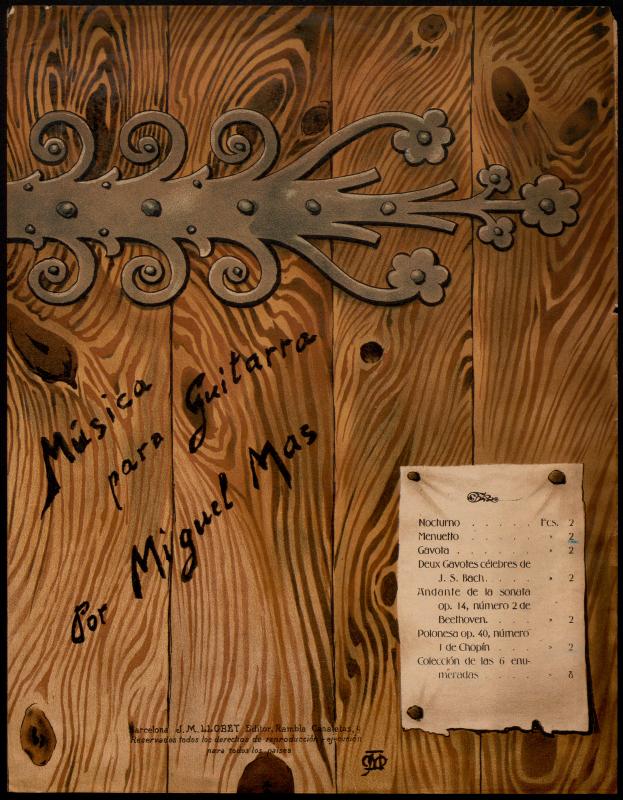 Música
para Guitarra
Por Miguel Mas
Nocturno . . . . . Pcs. 2
Menuetto . . . . . » 2
Gavota . . . . . » 2
Deux Gavotes célebres de
J. S. Bach. . . . » 2
Andante de la sonata
op. 14, número 2 de
Beethoven. . . . » 2
Polonesa op. 40, número
1 de Chopín . . . » 2
Colección de las 6 enu-
meradas . . . . » 8
Barcelona J. M. LLOBET Editor, Rambla Canaletas,
Reservados todos los derechos de reproducción y ejecución
para todos los paises